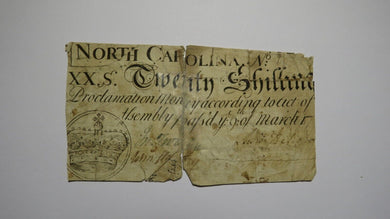 NORTH CAROLINA. No
XX.S. Twenty Shillin
Proclamation Money according to Act of
sembly pass'd ye 9th of March